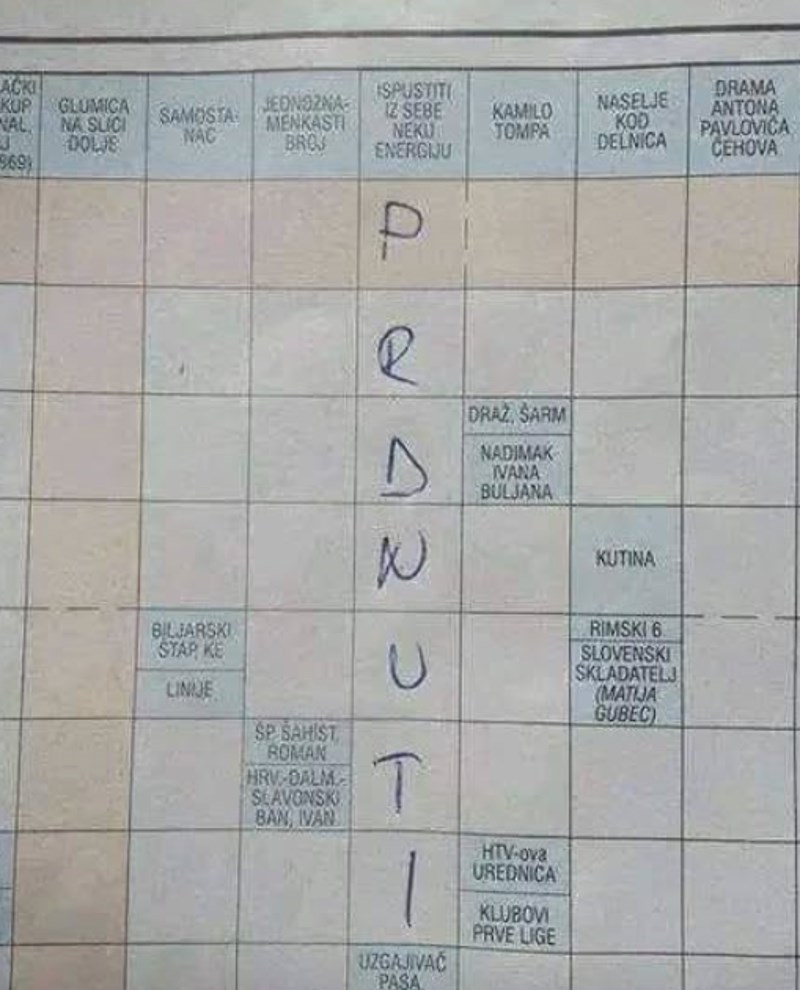 AČKI
KUP
NAL.
J
869)
GLUMICA
NA SLICI
DOLJE
SAMOSTA-
NAC
JEDNOZNA-
MENKASTI
BROJ
ISPUSTITI
IZ SEBE
NEKU
ENERGIJU
KAMILO
TOMPA
NASELJE
KOD
DELNICA
DRAMA
ANTONA
PAVLOVIĆA
ČEHOVA
P
R
D
N
U
T
I
DRAŽ, ŠARM
NADIMAK
IVANA
BULJANA
KUTINA
BILJARSKI
ŠTAP, KE
LINIJE
RIMSKI 6
SLOVENSKI
SKLADATELJ
(MATIJA
GUBEC)
ŠP. ŠAHIST,
ROMAN
HRV.-DALM.-
SLAVONSKI
BAN, IVAN
HTV-ova
UREDNICA
KLUBOVI
PRVE LIGE
UZGAJIVAČ
PASA